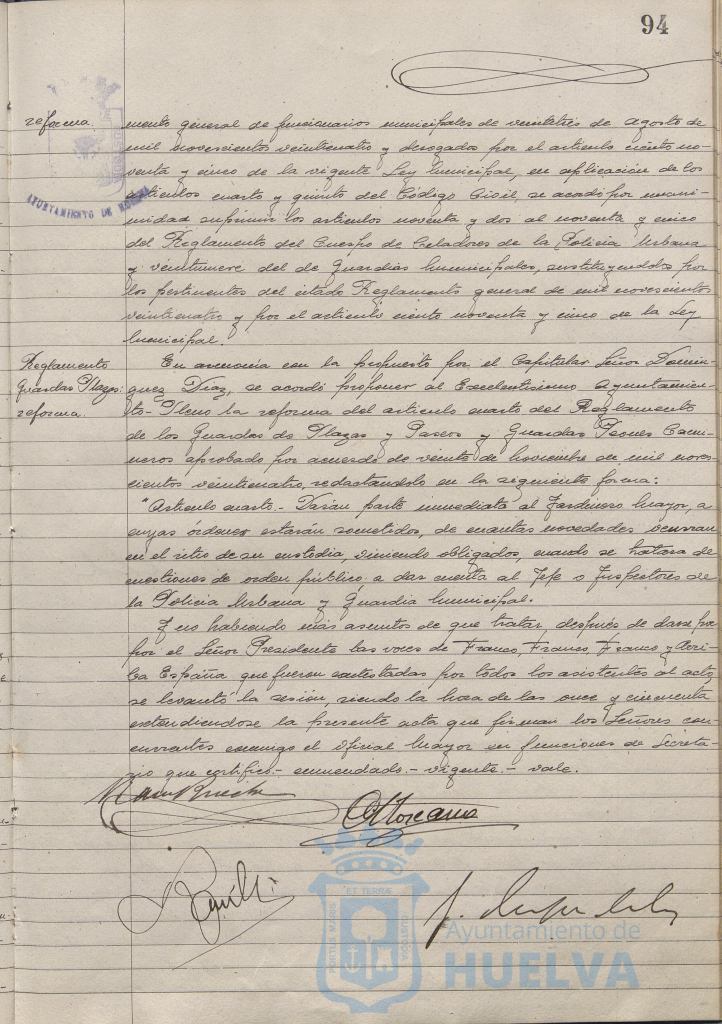 94
reforma.
mento general de funcionarios municipales de veintitres de agosto de
mil novescientos veinticuatro y derogados por el articulo ciento no-
venta y cinco de la vigente Ley Municipal, en aplicacion de los
articulos cuarto y quinto del Codigo Civil, se acordó por unani-
midad suprimir los articulos noventa y dos al noventa y cinco
del Reglamento del Cuerpo de Celadores de la Policia Urbana
y veintinueve del de Guardias Municipales, sustituyendolos por
los pertinentes del citado Reglamento general de mil novescientos
veinticuatro y por el articulo ciento noventa y cinco de la Ley
Municipal.
Reglamento
Guardas Plazas:
reforma.
En armonia con lo propuesto por el Capitular Señor Domin-
guez Diaz, se acordó proponer al Excelentisimo Ayuntamien-
to-Pleno la reforma del articulo cuarto del Reglamento
de los Guardas de Plazas y Paseos y Guardas Peones Cami-
neros aprobado por acuerdo de veinte de Noviembre de mil noves-
cientos veinticuatro, redactandolo en la siguiente forma:
"Articulo cuarto.- Daran parte inmediata al Jardinero Mayor, a
cuyas órdenes estarán sometidos, de cuantas novedades ocurran
en el sitio de su custodia, viniendo obligados, cuando se tratara de
cuestiones de orden público, a dar cuenta al Jefe o Inspectores de
la Policia Urbana y Guardia Municipal.
Y no habiendo más asuntos de que tratar, después de darse por
por el Señor Presidente las voces de Franco, Franco, Franco y Arri-
ba España que fueron contestadas por todos los asistentes al acto,
se levantó la sesión, siendo la hora de las once y cincuenta
extendiendose la presente acta que firman los Señores con-
currentes conmigo el Oficial Mayor en funciones de Secreta-
rio que certifico.- enmendado.- vigente.- vale.
AYUNTAMIENTO DE HUELVA
PORTUS MARIS
ET TERRÆ
CUSTODIA
Ayuntamiento de
HUELVA